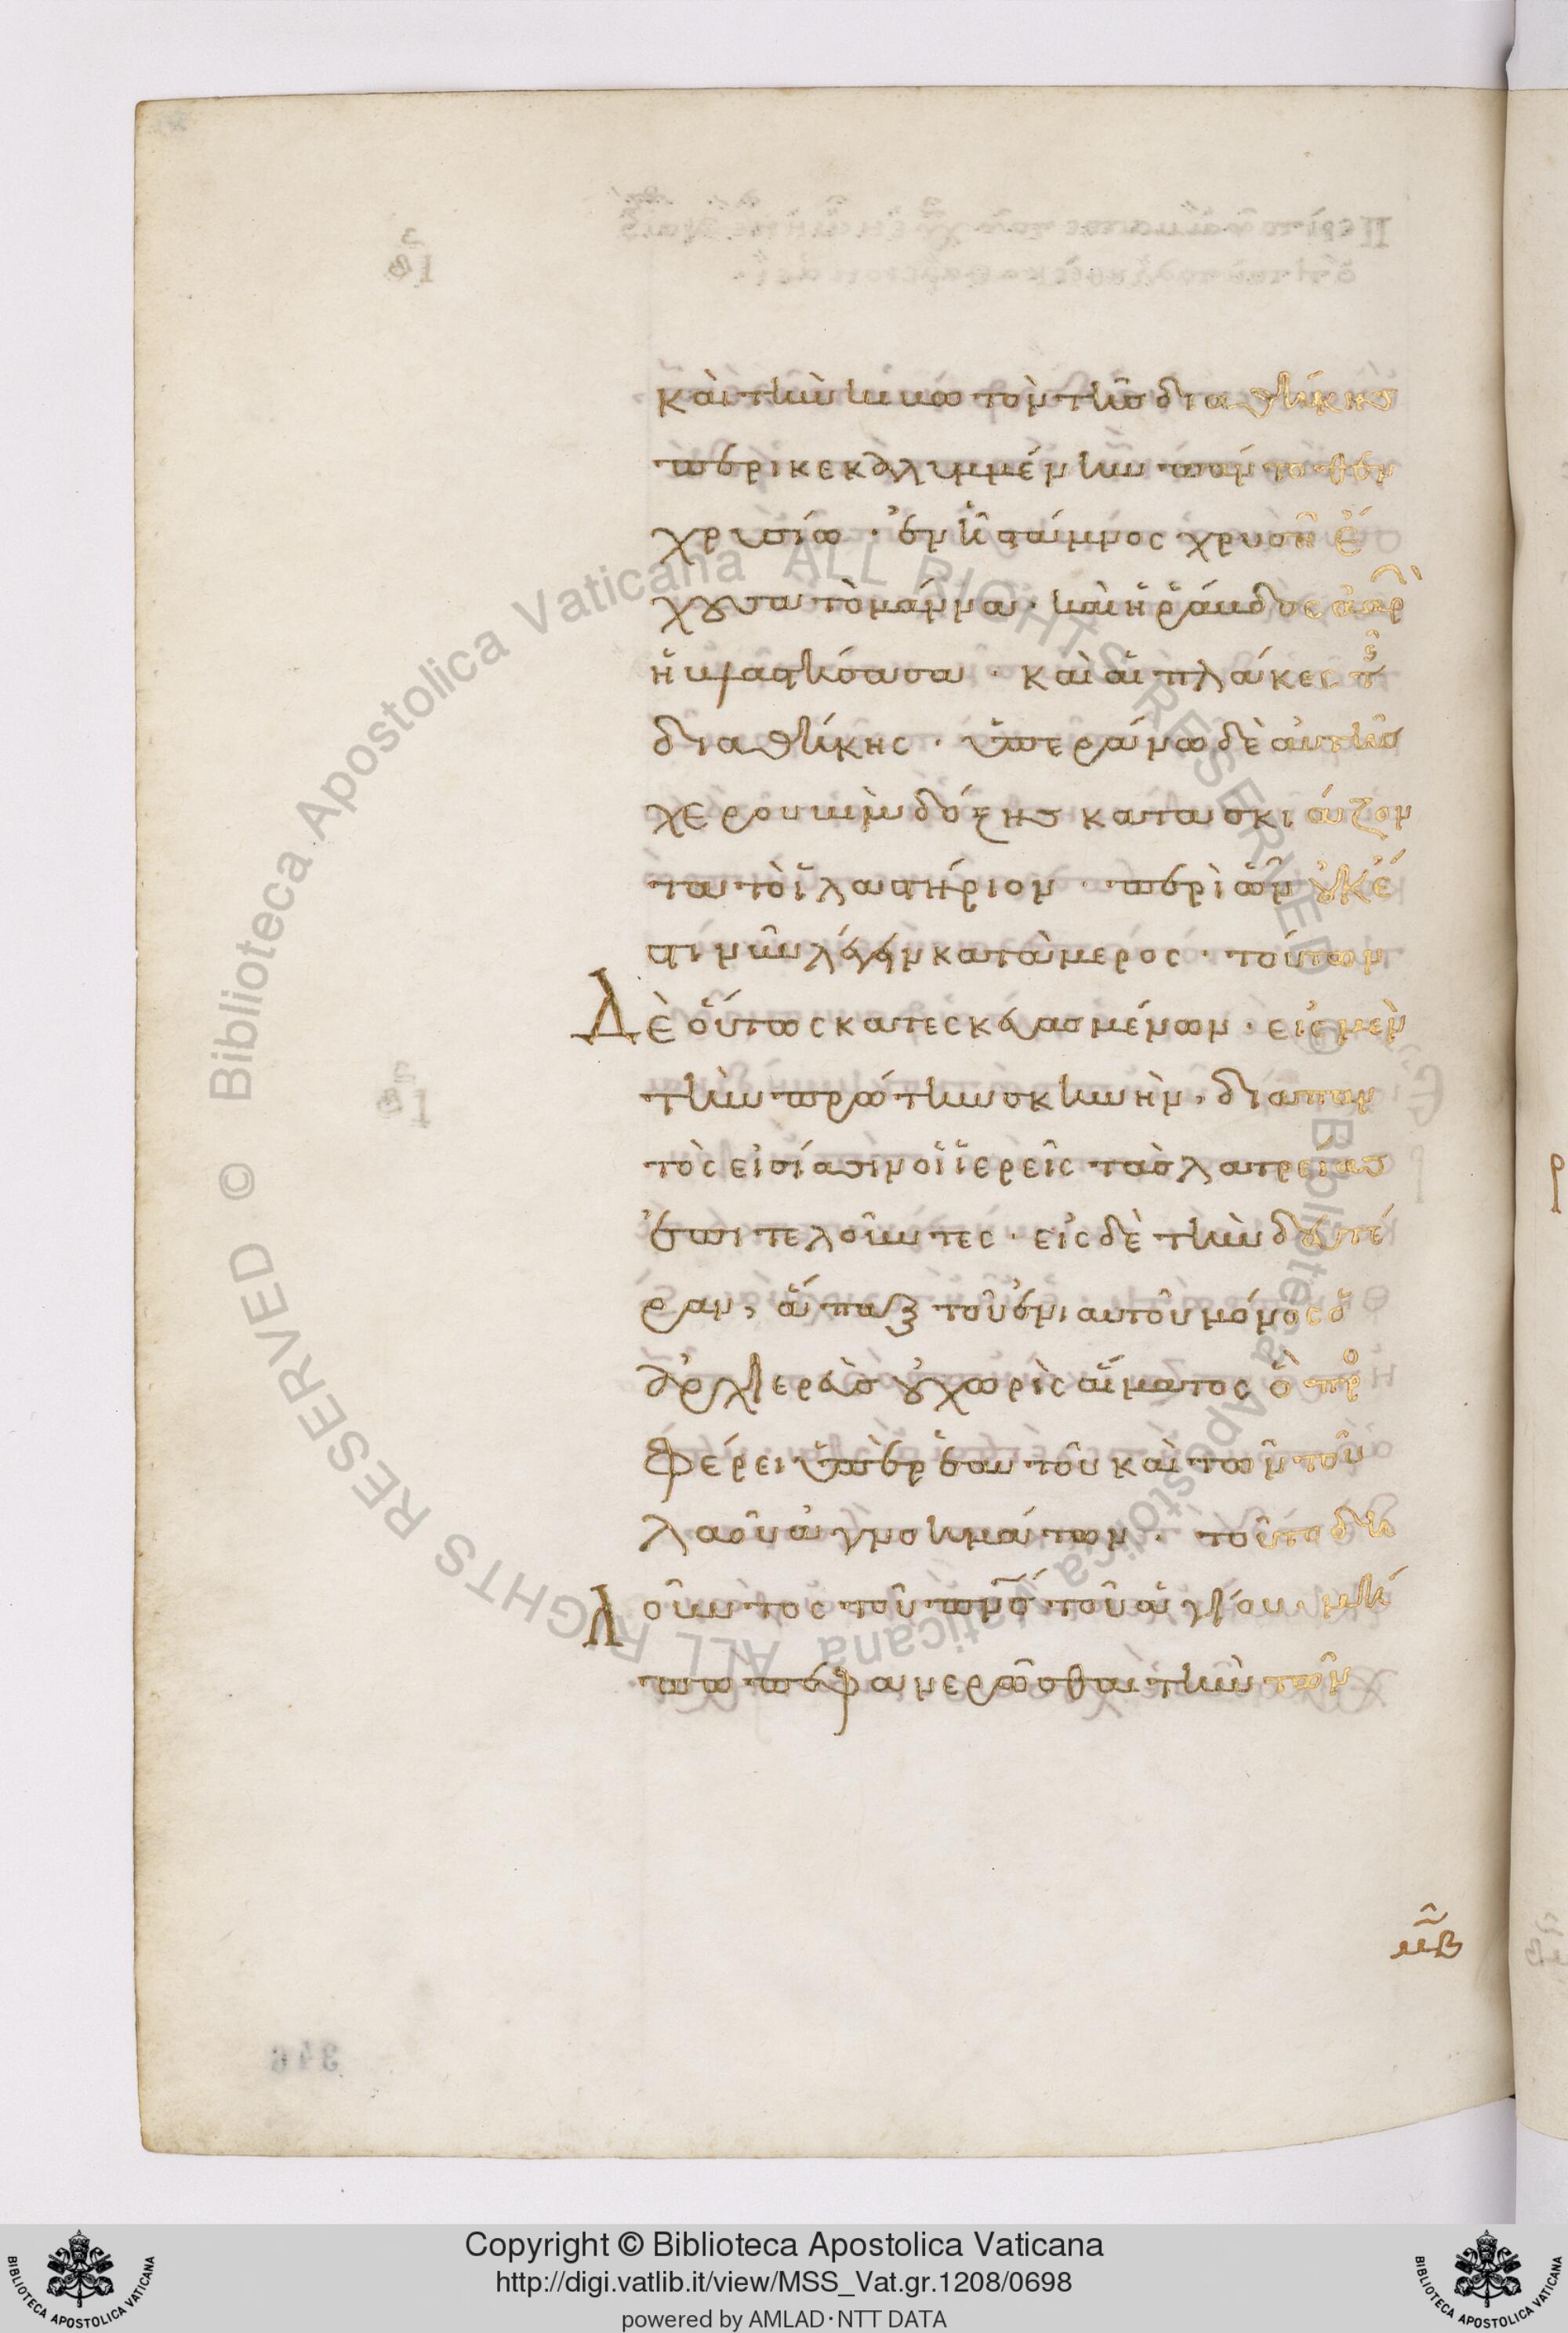 καὶ τὴν κιβωτὸν τῆς διαθήκης
περικεκαλυμμένην πάντοθεν
χρυσίω · ἐν ἧ στάμνος χρυσῆ ἔ
χουσα τὸ μάννα · καὶ ἡ ῥάβδος ἀαρ
ἡ βλαστήσασα · καὶ αἱ πλάκες τ
διαθήκης · ὑπεράνω δὲ αὐτῆς
χερουβὶμ δόξης κατασκιάζον
τα τὸ ἱλαστήριον · περὶ ὧν οὐκ ἔ
στι νῦν λέγειν κατὰ μερος · τούτων
Δὲ οὕτως κατεσκευασμένων · εἰς μὲν
τὴν πρώτην σκηνὴν, διαπαν
τὸς εἰσίασιν οἱ ἱερεῖς τὰς λατρείας
ἐπιτελοῦντες · εἰς δὲ τὴν δευτέ
ραν, ἅπαξ τοῦ ἐνιαυτοῦ μόνος ὁ
ἀρχιερεὺς οὐ χωρὶς αἵματος ὃ προ
φέρει ὑπὲρ ἑαυτοῦ καὶ τῶν τοῦ
λαοῦ ἀγνοημάτων · τοῦτο δη
λοῦντος τοῦ πνς τοῦ ἁγίου · μή
πω πεφανερῶσθαι τὴν τῶν
μβ
346
Copyright © Biblioteca Apostolica Vaticana
http://digi.vatlib.it/view/MSS_Vat.gr.1208/0698
powered by AMLAD·NTT DATA